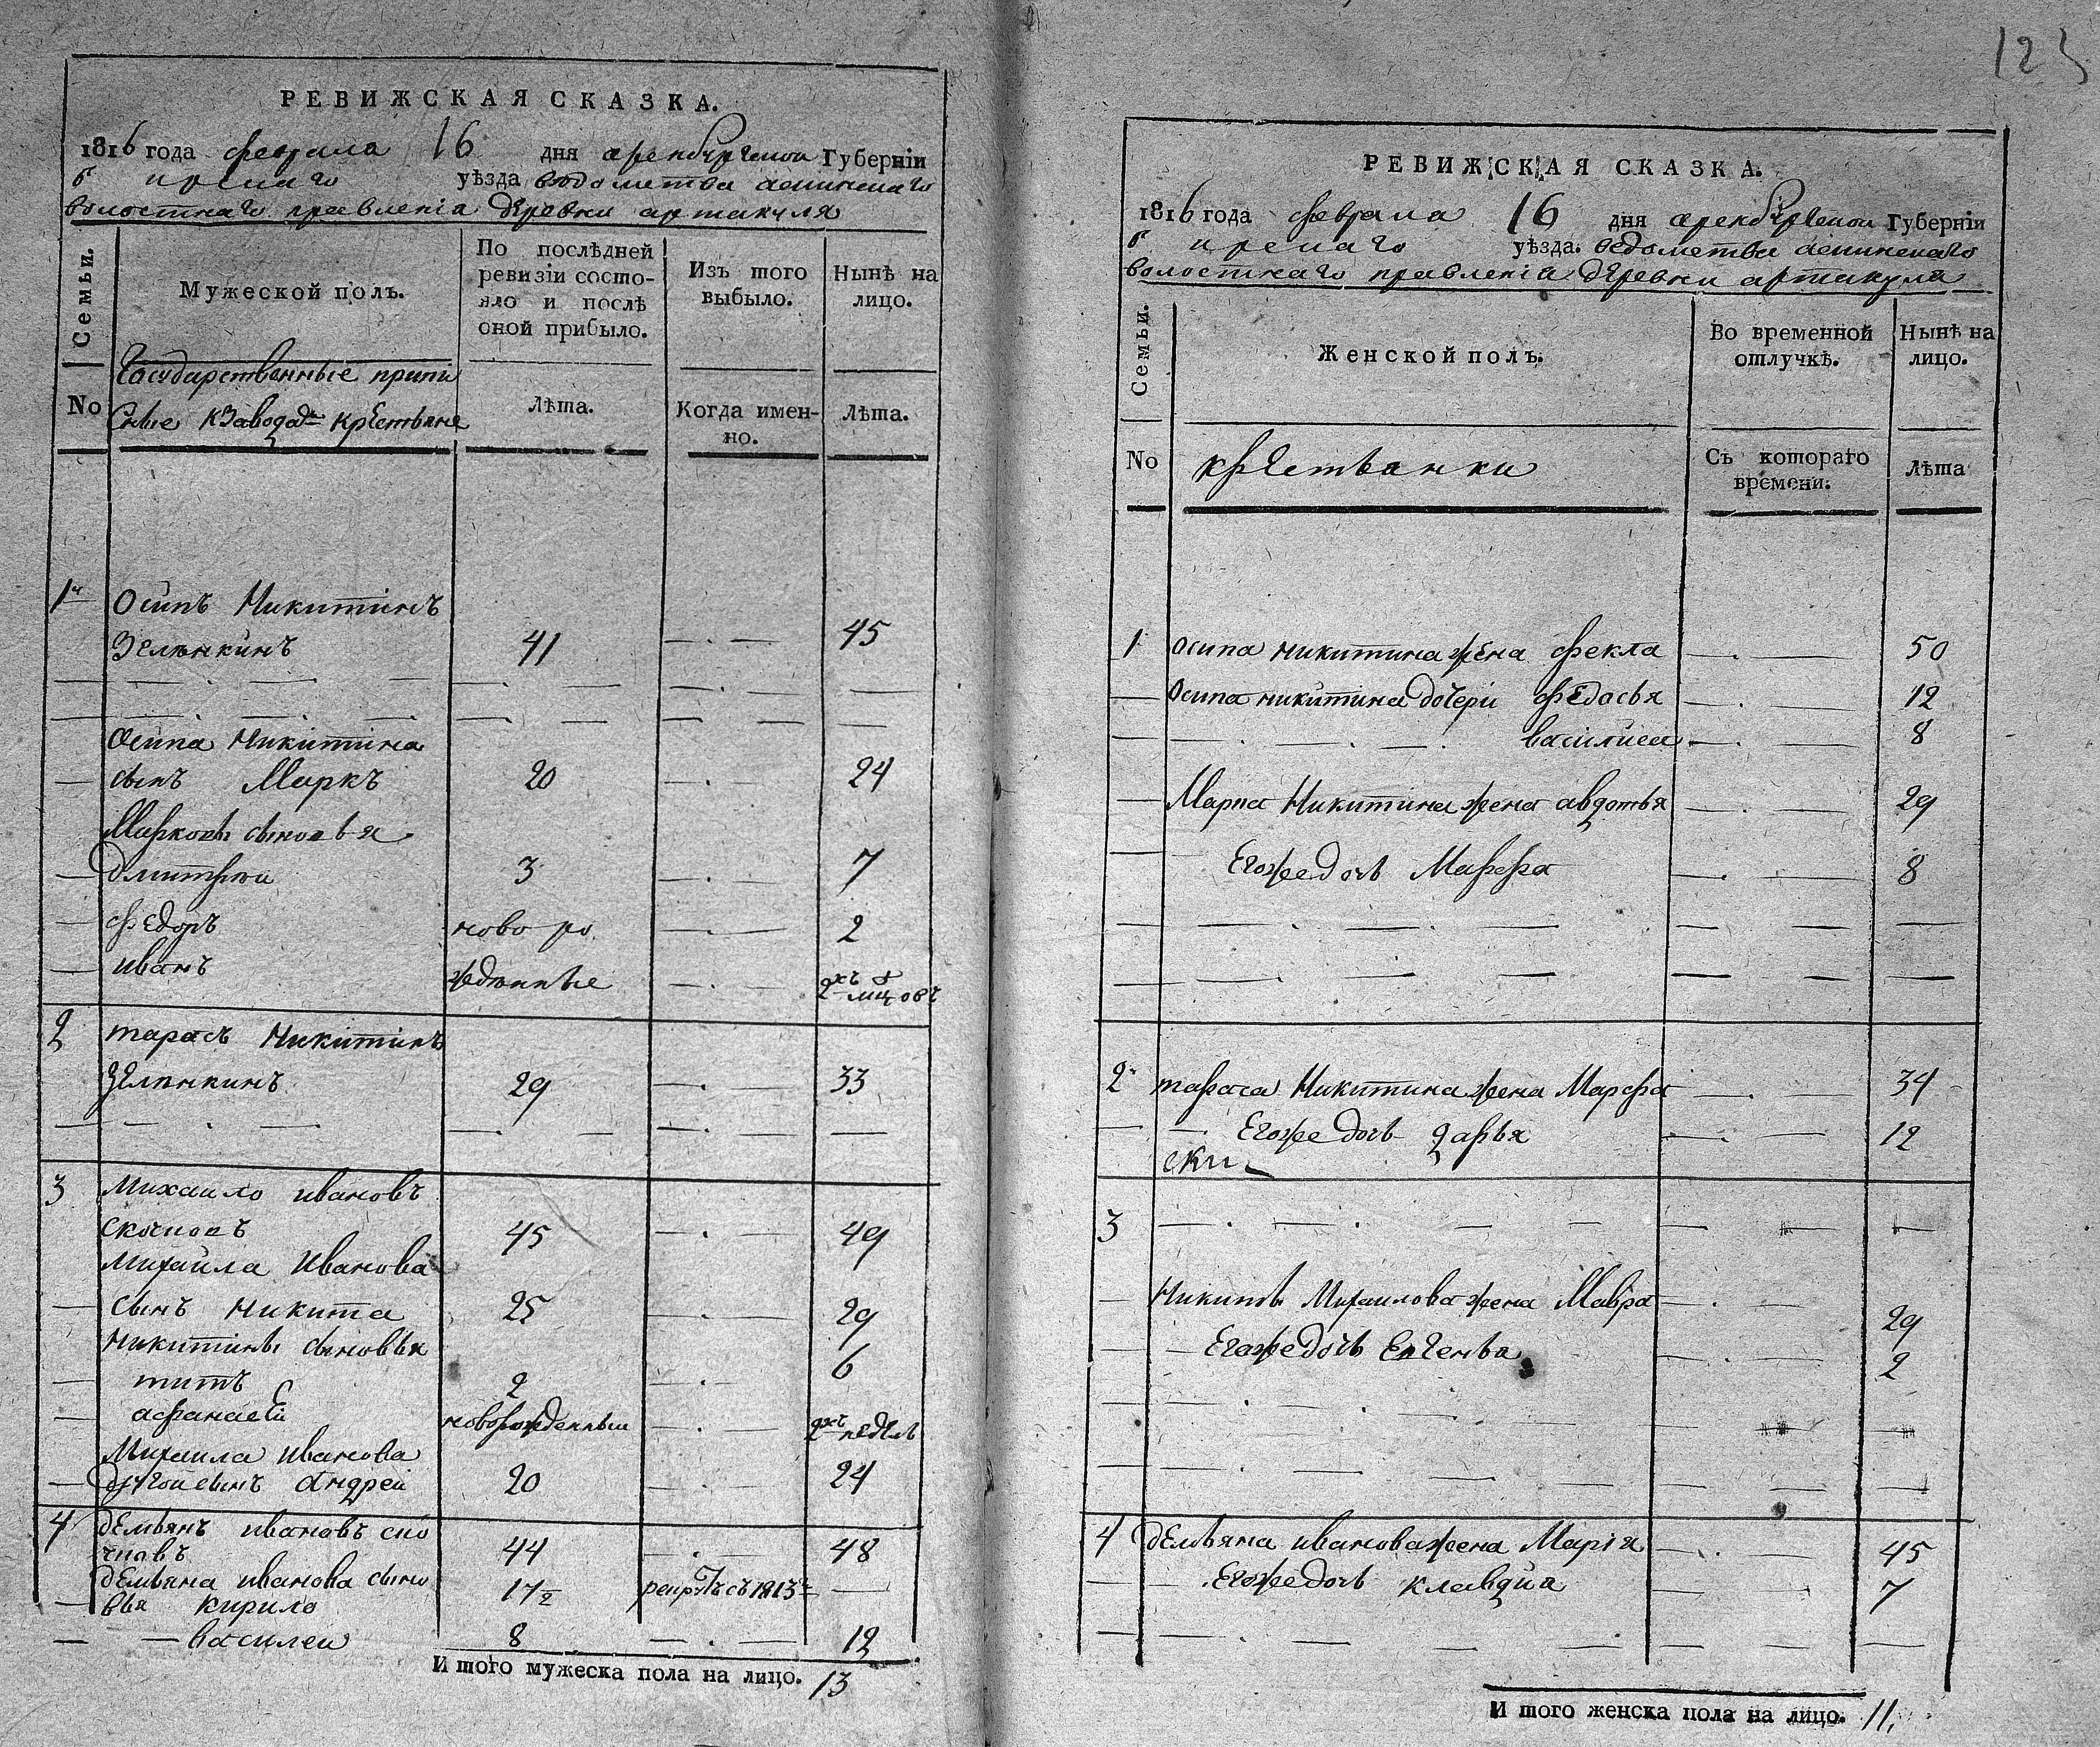 123
РЕВИЖСКАЯ СКАЗКА.
1816 года февраля 16 дня оренбургской Губернiи
бирскаго уѣзда ведомства аскинскаго
волостнаго правленiя деревни артакуля
Семьи.
No
Мужеской полъ.
Государственные припи
сные кЗаводамъ крестьяне
По послѣдней
ревизiи состо-
яло и послѣ
оной прибыло.
Лѣта.
Изъ того
выбыло.
Когда имен-
но.
Нынѣ на
лицо.
Лѣта.
1й Осипъ Никитинъ
Зелѣнкинъ 41 45
Осипа Никитина
сынъ Маркъ 20 24
Марковы сыновья
Дмитрей 3 7
федоръ ново ро 2
иванъ жденные 2хъ мцовъ
2 тарасъ Никитинъ
Зелѣнкинъ 29 33
3 Михаило ивановъ
скочковъ 45 49
Михаила Иванова
сынъ Никита 25 29
Никитины сыновья 6
титъ 2
афанасей новорожденный 2хъ недель
Михаила Иванова
другой сынъ Андрей 20 24
4 демьянъ ивановъ ско
чковъ 44 48
демьяна иванова сыно 17½ рекрутъ съ 1813го
вья кирило
василеи 8 12
И того мужеска пола на лицо. 13
РЕВИЖСКАЯ СКАЗКА.
1816 года февраля 16 дня оренбургской Губернiи
бирскаго уѣзда. ведомства аскинскаго
волостнаго правленiя деревни артакуля
Семьи.
No
Женской полъ.
крестьянки
Во временной
отлучкѣ.
Съ котораго
времени.
Нынѣ на
лицо.
Лѣта
1 осипа никитина жена фекла 50
Осипа никитина дочери федосья 12
василиса 8
Марка Никитина жена авдотья 29
Егоже дочь Марфа 8
2 тараса Никитина жена Марфа 34
Егоже дочь дарья 12
3
Никиты Михаилова жена Мавра 29
Егоже дочь Евгенья 2
4 демьяна иванова жена Марiя 45
Егоже дочь клавдиа 7
И того женска пола на лицо. 11.